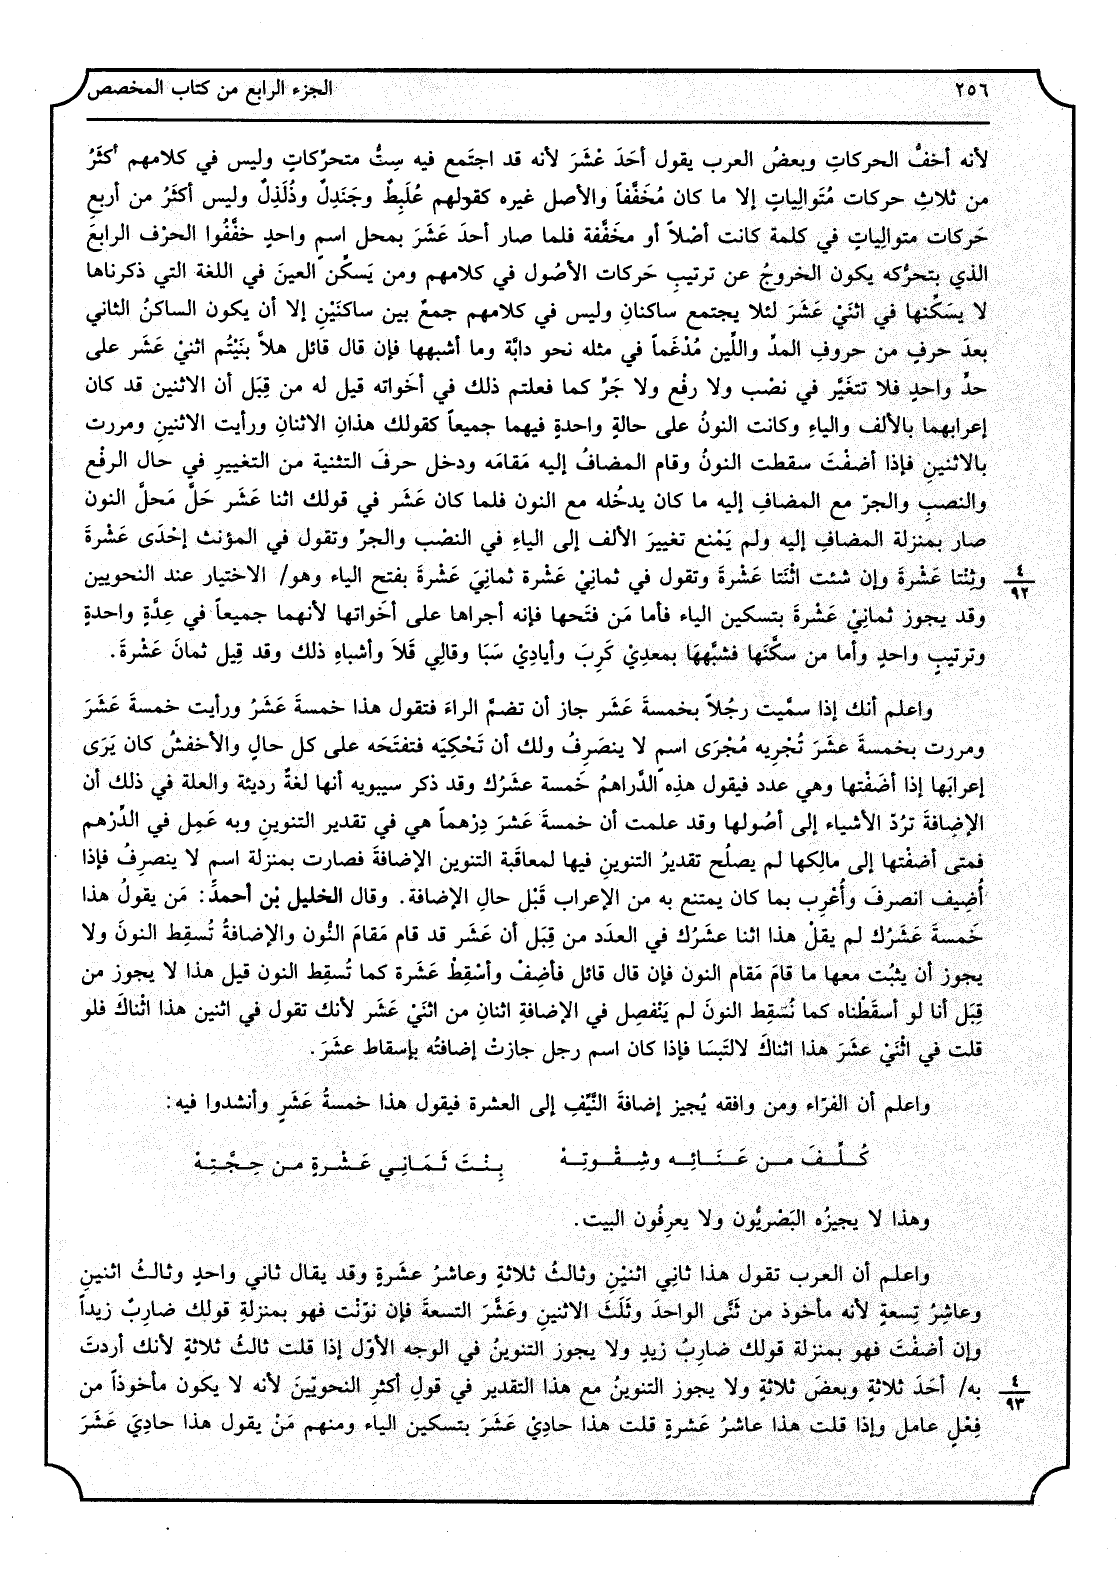 ٢٥٦ الجزء الرابع من كتاب المخصص
لأنه أخفُّ الحركاتِ وبعضُ العرب يقول أحَدَ عْشَرَ لأنه قد اجتَمع فيه سِتُّ متحرِّكاتٍ وليس في كلامهم أكثَرُ
من ثلاثِ حركات مُتَوالِياتٍ إلا ما كان مُخَفَّفاً والأصل غيره كقولهم عُلَبِطٌ وجَنَدِلٌ وذُلَذِلٌ وليس أكثَرُ من أربعِ
حَركات متوالِياتٍ في كلمة كانت أصْلاً أو مخَفَّفة فلما صار أحدَ عَشَرَ بمحل اسمٍ واحدٍ خفَّفُوا الحرْف الرابعَ
الذي بتحرُّكه يكون الخروجُ عن ترتيبِ حَركات الأصُول في كلامهم ومن يَسكِّن العينَ في اللغة التي ذكرناها
لا يسَكِّنها في اثنَيْ عَشَرَ لئلا يجتمع ساكنانِ وليس في كلامهم جمعٌ بين ساكنَيْنِ إلا أن يكون الساكنُ الثاني
بعدَ حرفٍ من حروفِ المدِّ واللِّين مُدْغَماً في مثله نحو دابَّة وما أشبهها فإن قال قائل هلاَّ بنَيْتُم اثنيْ عَشَر على
حدٍّ واحدٍ فلا تتغَيَّر في نصْب ولا رفْع ولا جَرٍّ كما فعلتم ذلك في أخَواته قيل له من قِبَل أن الاثنين قد كان
إعرابهما بالألف والياءِ وكانت النونُ على حالةٍ واحدةٍ فيهما جميعاً كقولك هذانِ الاثنانِ ورأيت الاثنينِ ومررت
بالاثنينِ فإذا أضفْتَ سقطت النونُ وقام المضافُ إليه مَقامَه ودخل حرفَ التثنية من التغيير في حال الرفْع
والنصبِ والجرّ مع المضافِ إليه ما كان يدخُله مع النون فلما كان عَشَر في قولك اثنا عَشَر حَلَّ مَحلَّ النون
صار بمنزلة المضافِ إليه ولم يَمْنع تغييرَ الألف إلى الياءِ في النصْب والجرِّ وتقول في المؤنث إحْدَى عَشْرةَ
وثِنْتا عَشْرةَ وإن شئت اثْنَتا عَشْرةَ وتقول في ثمانِيْ عَشْرة ثمانِيَ عَشْرةَ بفتح الياء وهو/ الاختيار عند النحويين
٤
٩٢
وقد يجوز ثمانِيْ عَشْرةَ بتسكين الياء فأما مَن فتَحها فإنه أجراها على أخَواتها لأنهما جميعاً في عِدَّةٍ واحدةٍ
وترتيبٍ واحدٍ وأما من سكَّنَها فشبَّهها بمعدِيْ كَرِبَ وأيادِيْ سَبَا وقالِي قَلاَ وأشباهِ ذلك وقد قِيل ثمانَ عَشْرةَ.
واعلم أنك إذا سمَّيت رجُلاً بخمسةَ عَشَر جاز أن تضمَّ الراءَ فتقول هذا خمسةَ عَشَرُ ورأيت خمسةَ عَشَرَ
ومررت بخمسةَ عشَرَ تُجْرِيه مُجْرَى اسمٍ لا ينصَرِفُ ولك أن تَحْكِيَه فتفتَحَه على كل حالٍ والأخفشُ كان يَرَى
إعرابَها إذا أضَفْتها وهي عدد فيقول هذِه الدَّراهمُ خَمسة عشَرُك وقد ذكر سيبويه أنها لغةٌ رديئة والعلة في ذلك أن
الإضافةَ ترُدّ الأشياء إلى أصُولها وقد علمت أن خمسةَ عَشرَ دِرْهماً هي في تقدير التنوينِ وبه عَمِل في الدِّرْهم
فمتى أضفْتها إلى مالِكها لم يصلُح تقديرُ التنوينِ فيها لمعاقَبة التنوين الإضافةَ فصارت بمنزلة اسم لا ينصرِفُ فإذا
أُضِيف انصرفَ وأُعْرِب بما كان يمتنع به من الإعراب قَبْل حالِ الإضافة. وقال الخليل بْن أحمدَ: مَن يقولُ هذا
خَمسةَ عَشَرُك لم يقلْ هذا اثنا عشَرُك في العدَد من قِبَل أن عَشَر قد قام مَقامَ النُّون والإضافةُ تُسقِط النونَ ولا
يجوز أن يثبُت معها ما قامَ مَقام النون فإن قال قائل فأضِفْ وأسْقِطْ عَشَرة كما تُسقِط النون قيل هذا لا يجوز من
قِبَل أنا لو أسقَطْناه كما نُسْقِط النونَ لم يَنْفصِل في الإضافةِ اثنانِ من اثنَيْ عَشَر لأنك تقول في اثنين هذا اثْناكَ فلو
قلت في اثْنَيْ عشَرَ هذا اثناكَ لالتَبسَا فإذا كان اسم رجل جازتْ إضافتُه بإسقاط عشَرَ.
واعلم أن الفرّاء ومن وافقه يُجيز إضافةَ النَّيِّفِ إلى العشرة فيقول هذا خمسةُ عَشَرٍ وأنشدوا فيه:
كُـلِّـفَ مـن عَـنَـائِـه وشِـقْـوتِـهْ بِـنْـتَ ثَـمَـانِـي عَـشْـرةٍ مـن حِـجَّـتِـهْ
وهذا لا يجيزُه البَصْريُّون ولا يعرِفُون البيت.
واعلم أن العرب تقول هذا ثانِي اثنيْنِ وثالثُ ثلاثةٍ وعاشرُ عشَرةٍ وقد يقال ثاني واحدٍ وثالثُ اثنينِ
وعاشِرُ تِسعةٍ لأنه مأخوذ من ثَنَّى الواحدَ وثَلَثَ الاثنينِ وعَشَّرَ التسعةَ فإن نوّنْت فهو بمنزلةِ قولك ضارِبٌ زيداً
وإن أضفْتَ فهو بمنزلة قولك ضارِبُ زيدٍ ولا يجوز التنوينُ في الوجه الأوّل إذا قلت ثالثُ ثلاثةٍ لأنك أردتَ
به/ أحَدَ ثلاثةٍ وبعضَ ثلاثةٍ ولا يجوز التنوينُ مع هذا التقدير في قولِ أكثرِ النحويّينَ لأنه لا يكون مأخوذاً من
٤
٩٣
فِعْلٍ عامل وإذا قلت هذا عاشرُ عَشرةٍ قلت هذا حادِيْ عَشَرَ بتسكين الياء ومنهم مَنْ يقول هذا حادِيَ عَشَرَ